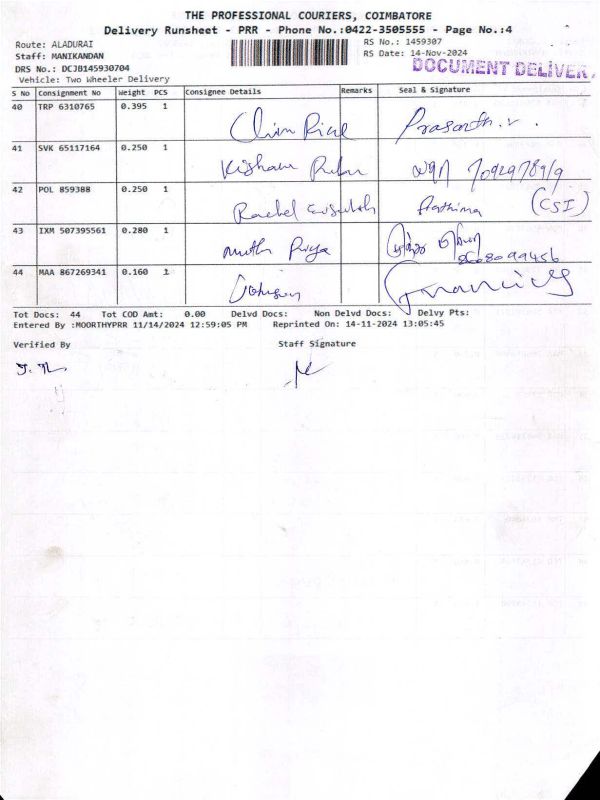 THE PROFESSIONAL COURIERS, COIMBATORE
Delivery Runsheet - PRR - Phone No.:0422-3505555 - Page No.:4
Route: ALADURAI
Staff: MANIKANDAN
DRS No.: DCJB145930704
Vehicle: Two Wheeler Delivery
RS No.: 1459307
RS Date: 14-Nov-2024
DOCUMENT DELIVER
S No Consignment No Weight PCS Consignee Details Remarks Seal & Signature
40 TRP 6310765 0.395 1 Prasanth. v.
41 SVK 65117164 0.250 1 Kishan
42 POL 859388 0.250 1 Rachel Prathima (CSI)
43 IXM 507395561 0.280 1 Muthu Priya
44 MAA 867269341 0.160 1 Johnson Francis
Tot Docs: 44 Tot COD Amt: 0.00 Delvd Docs: Non Delvd Docs: Delvy Pts:
Entered By :MOORTHYPRR 11/14/2024 12:59:05 PM Reprinted On: 14-11-2024 13:05:45
Verified By Staff Signature